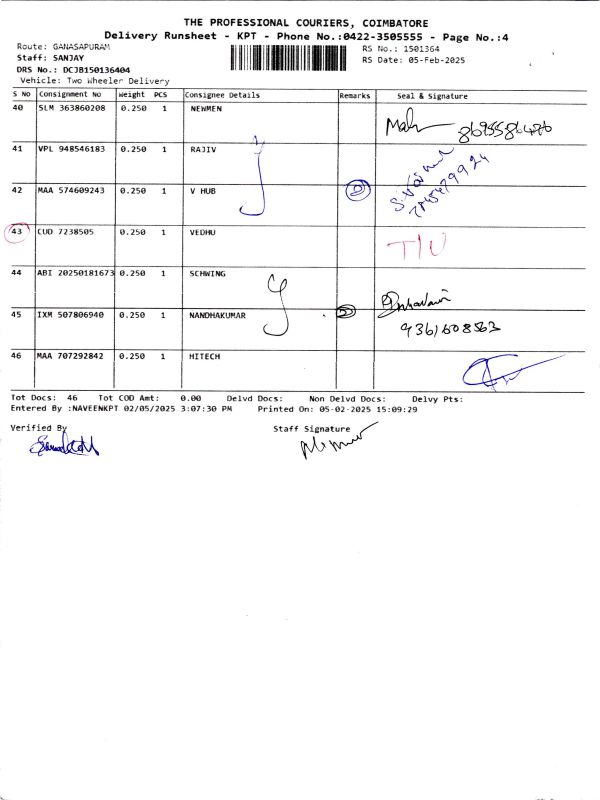 THE PROFESSIONAL COURIERS, COIMBATORE
Delivery Runsheet - KPT - Phone No.:0422-3505555 - Page No.:4
Route: GANASAPURAM
Staff: SANJAY
DRS No.: DCJB150136404
Vehicle: Two Wheeler Delivery
RS No.: 1501364
RS Date: 05-Feb-2025
S No Consignment No Weight PCS Consignee Details Remarks Seal & Signature
40 SLM 363860208 0.250 1 NEWMEN
8695586486
41 VPL 948546183 0.250 1 RAJIV
42 MAA 574609243 0.250 1 V HUB
43 CUD 7238505 0.250 1 VEDHU T/U
44 ABI 20250181673 0.250 1 SCHWING
45 IXM 507806940 0.250 1 NANDHAKUMAR
9361608563
46 MAA 707292842 0.250 1 HITECH
Tot Docs: 46 Tot COD Amt: 0.00 Delvd Docs: Non Delvd Docs: Delvy Pts:
Entered By :NAVEENKPT 02/05/2025 3:07:30 PM Printed On: 05-02-2025 15:09:29
Verified By Staff Signature